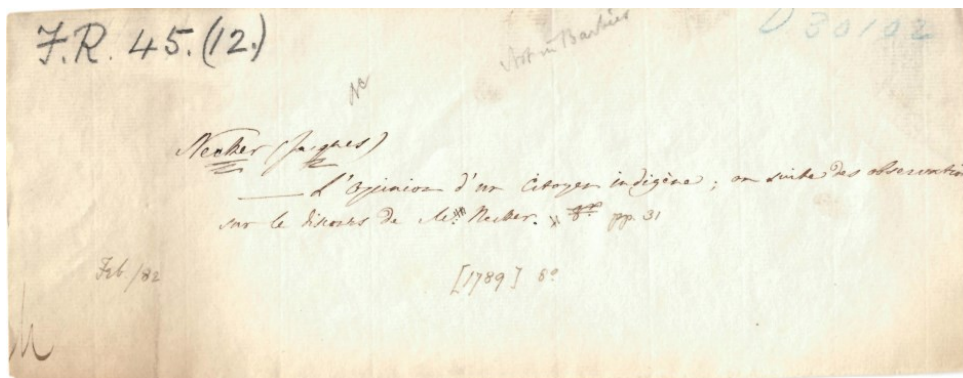 F.R. 45.(12.)
Not in Barbier
D.30102
NC
Necker (Jacques)
—— L'Opinion d'un Citoyen indigène; ou suite des observations
sur le discours de Mr. Necker. 8º pp. 31
Feb/82
[1789] 8º
M